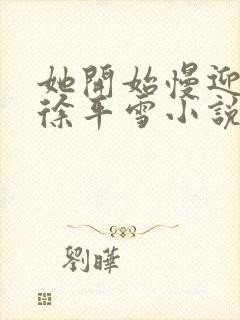 她開始慢迎
徐平雪小說
劉曄